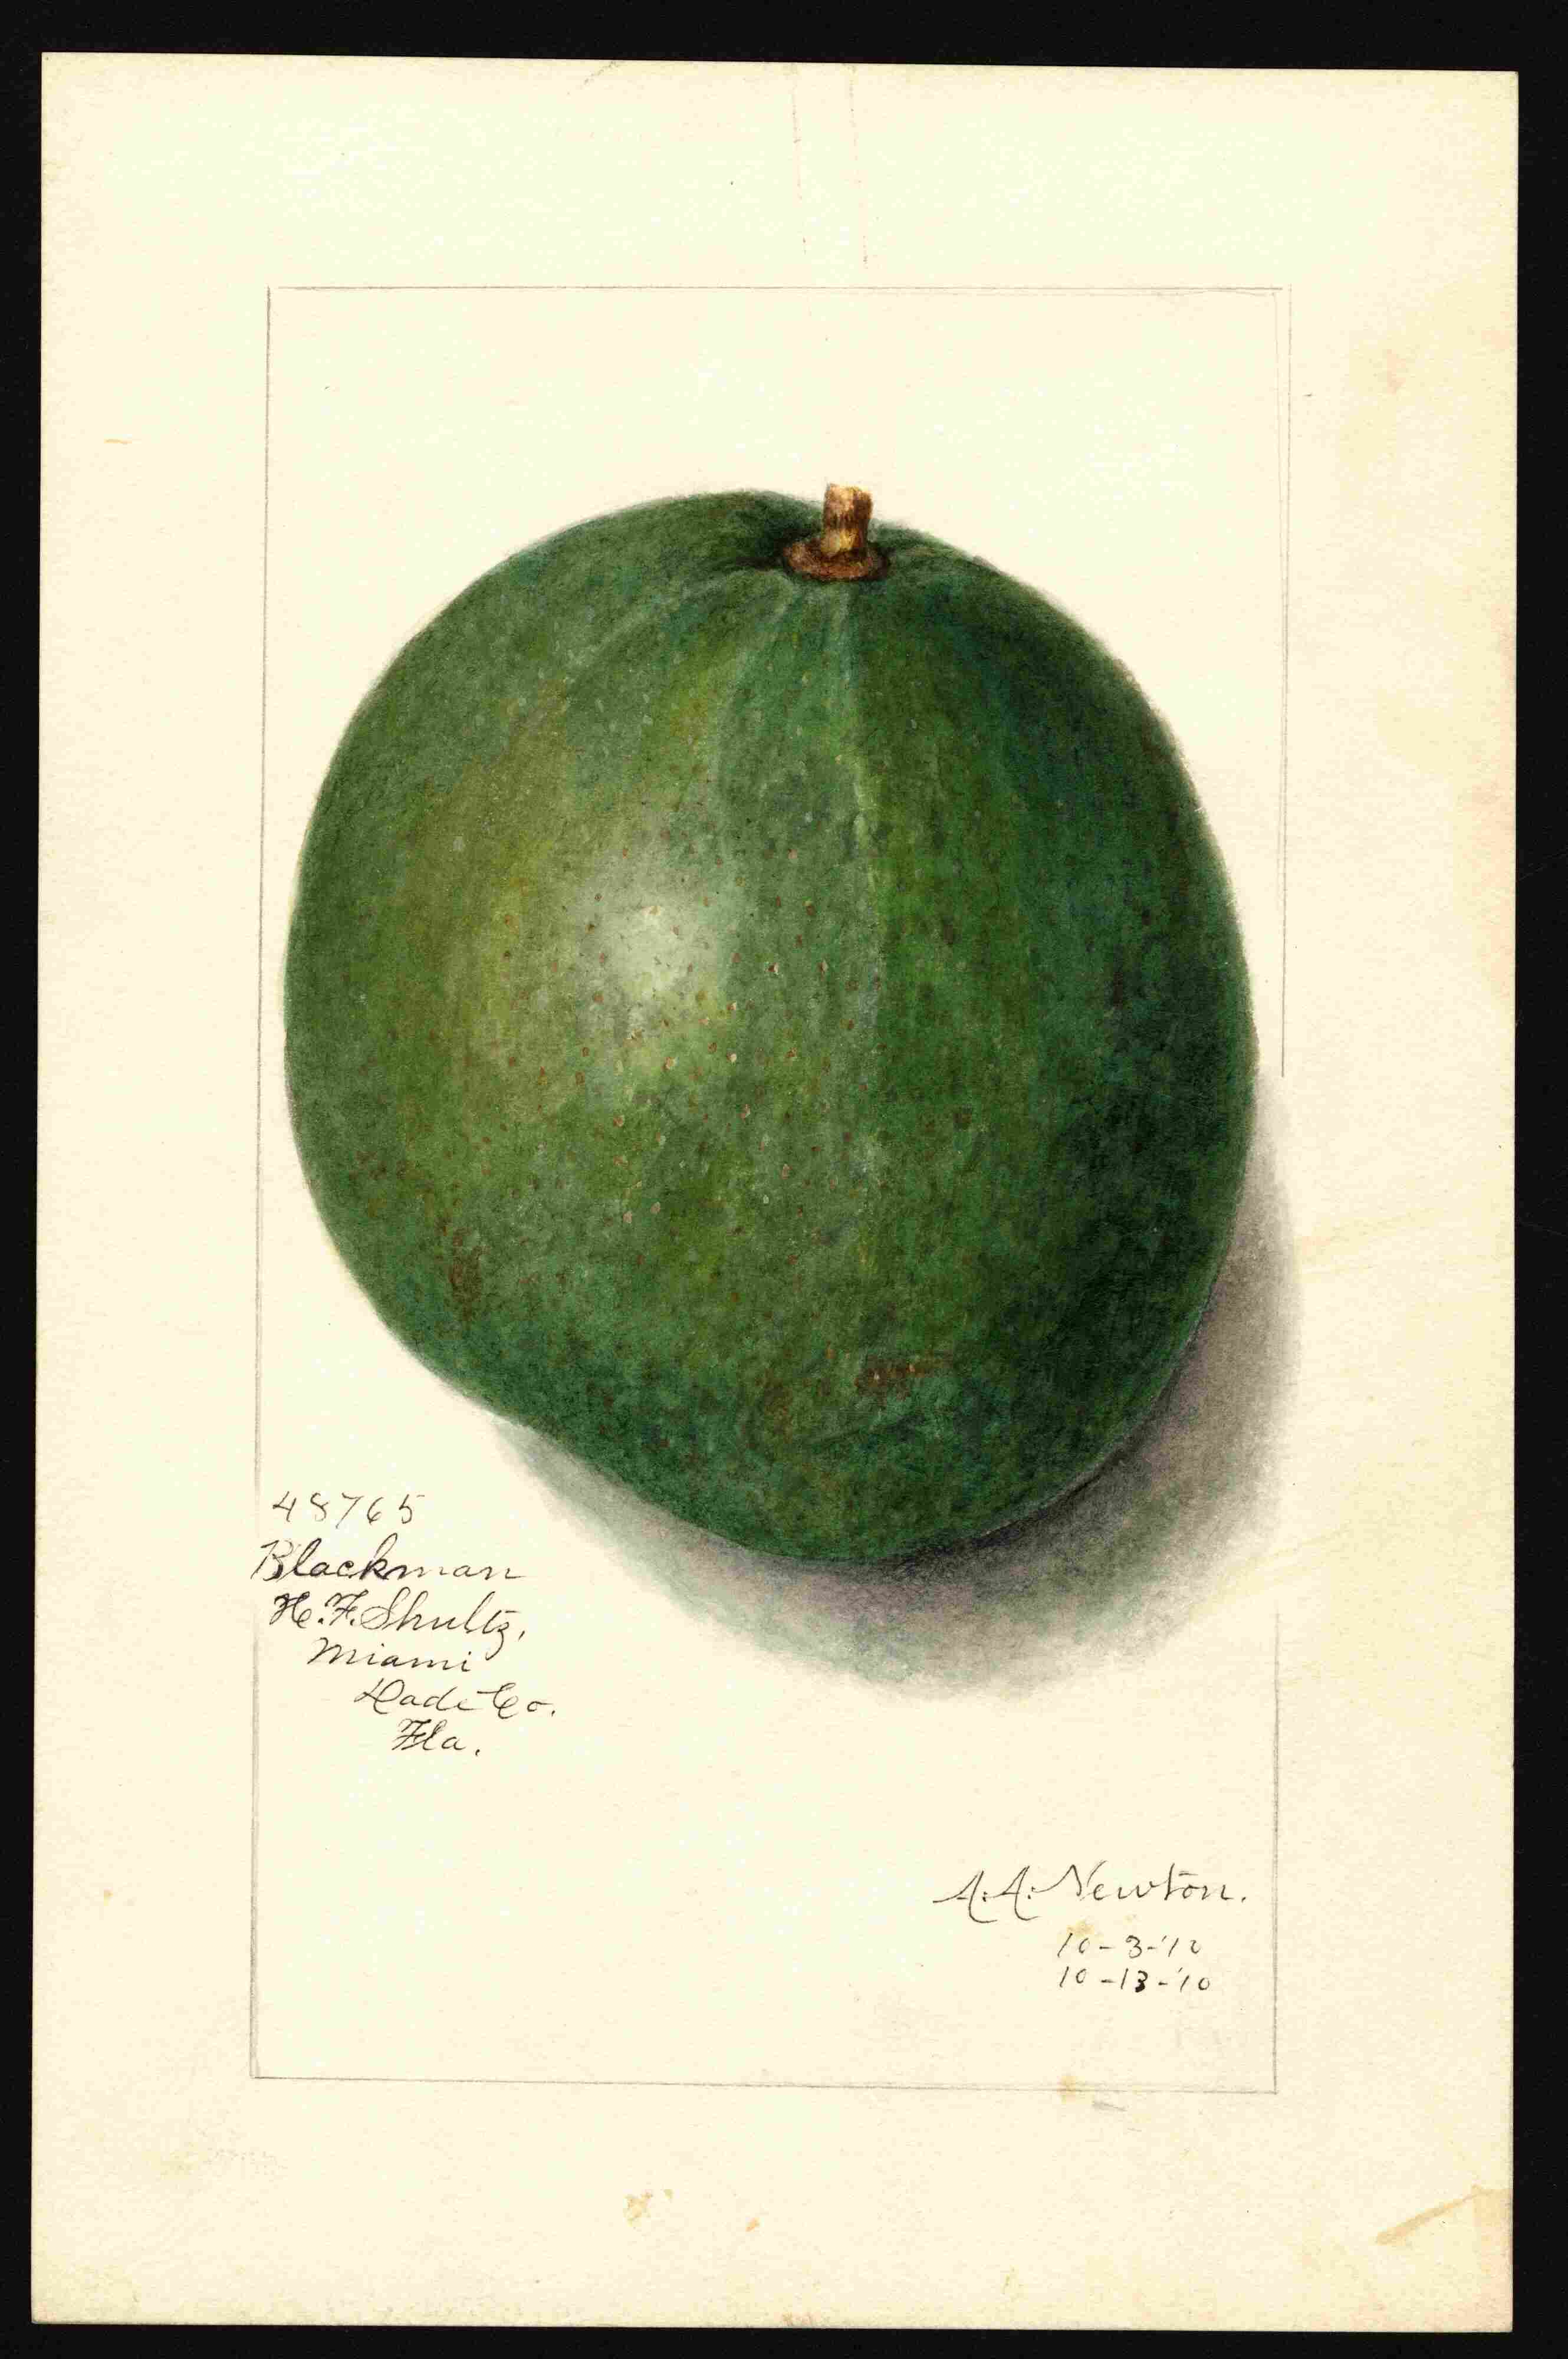 48765
Blackman
H. F. Shultz,
Miami
Dade Co.
Fla.
A. A. Newton.
10-3-'10
10-13-'10